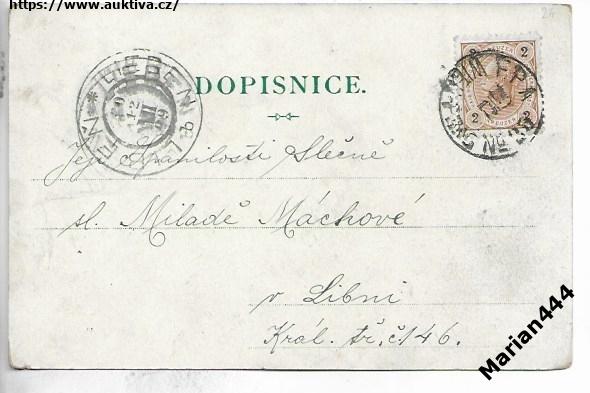 https://www.auktiva.cz/
DOPISNICE.
LIEBEN
2
2 2
Její Spanilosti Slečně
sl. Miladě Máchové
v Libni
Král. tř. č. 146.
Marian444